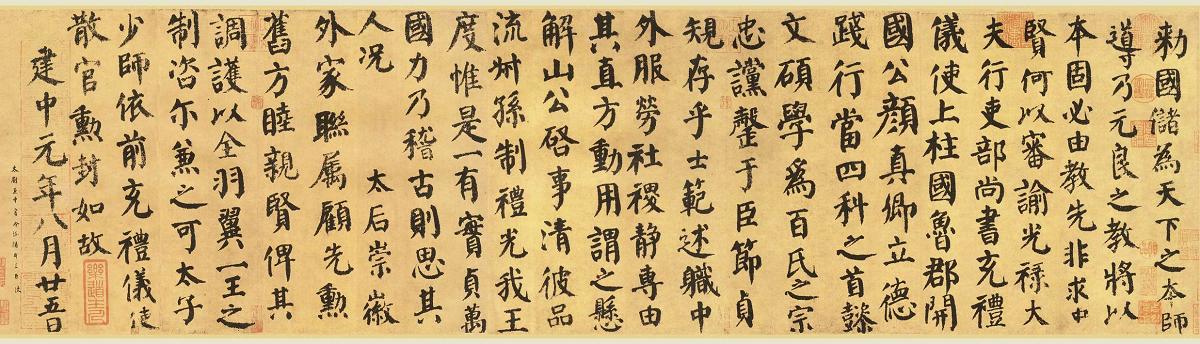 勅國儲為天下之本師
導乃元良之教將以
本固必由教先非求忠
賢何以審諭光祿大
夫行吏部尚書充禮
儀使上柱國魯郡開
國公顏真卿立德
踐行當四科之首懿
文碩學爲百氏之宗
忠讜罄于臣節貞
規存乎士範述職中
外服勞社稷静專由
其直方動用謂之懸
解山公啓事清彼品
流叔孫制禮光我王
度惟是一有實貞萬
國力乃稽古則思其
人况 太后崇徽
外家聯屬顧先勳
舊方睦親賢俾其
調護以全羽翼一王之
制咨尔兼之可太子
少師依前充禮儀使
散官勳封如故
建中元年八月廿五日